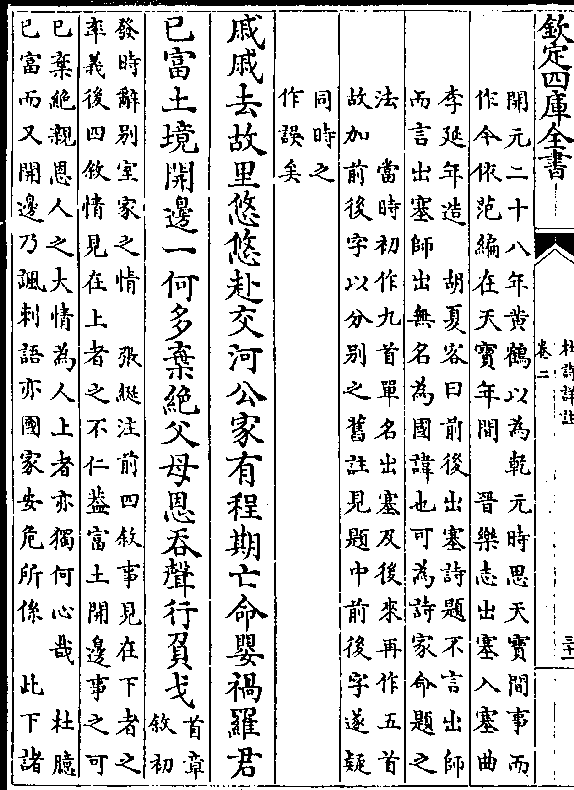 欽定四庫全書
杜詩詳註
卷二
三十一
開元二十八年黃鶴以為乾元時思天寶間事而
作今依范編在天寶年間　晉樂志出塞入塞曲
李延年造　胡夏客曰前後出塞詩題不言出師
而言出塞師出無名為國諱也可為詩家命題之
法　當時初作九首單名出塞及後來再作五首
故加前後字以分別之舊註見題中前後字遂疑
同時之
作誤矣
戚戚去故里悠悠赴交河公家有程期亡命嬰禍羅君
已富土境開邊一何多棄絕父母恩吞聲行負戈
首章
敘初
發時辭別室家之情　張綖注前四敘事見在下者之
率義後四敘情見在上者之不仁葢富土開邊事之可
已棄絕親恩人之大情為人上者亦獨何心哉　杜臆
已富而又開邊乃諷刺語亦國家安危所係　此下諸